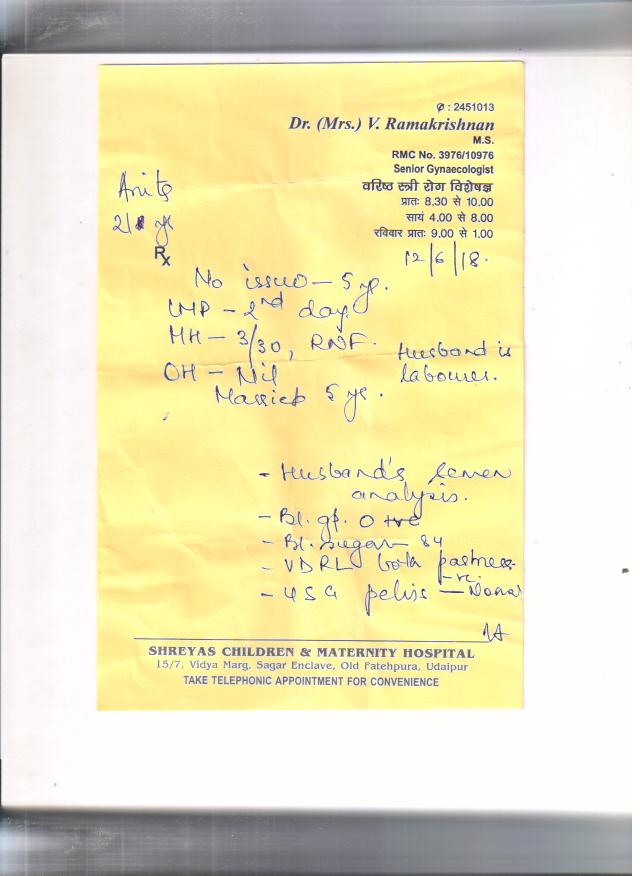 ✆ : 2451013
Dr. (Mrs.) V. Ramakrishnan
M.S.
RMC No. 3976/10976
Senior Gynaecologist
वरिष्ठ स्त्री रोग विशेषज्ञ
प्रातः 8.30 से 10.00
सायं 4.00 से 8.00
रविवार प्रातः 9.00 से 1.00
12/6/18.
Anita
yr
Rx
No issue — 5 yr.
LMP - 2nd day
MH — 3/30, RNF.
Husband is
labourer.
OH — Nil
Married 5 yr.
- Husband's semen
analysis.
- Bl. gp. O +ve
- Bl. sugar 84
- VDRL both partners
-ve.
- USG pelvis —
SHREYAS CHILDREN & MATERNITY HOSPITAL
15/7, Vidya Marg, Sagar Enclave, Old Fatehpura, Udaipur
TAKE TELEPHONIC APPOINTMENT FOR CONVENIENCE